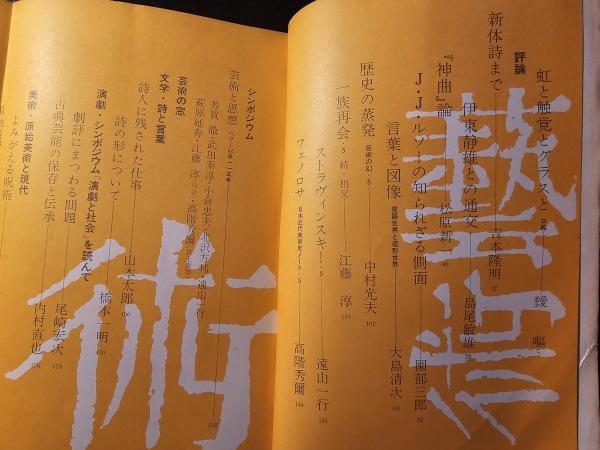 虹と触覚とグラスと 口絵 鑁嘔 7
評論
新体詩まで 吉本隆明 12
伊東静雄との通交 島尾敏雄 38
『神曲』論 松原新一 46
J・J・ルソーの知られざる側面 園部三郎 82
言葉と図像 言語世界と造形世界 大島清次 68
歴史の蒸発 芸術の幻・5 中村光夫 102
一族再会 5 続・祖父 江藤淳 114
ストラヴィンスキー・5 遠山一行 135
フェノロサ 日本近代美術史ノート・5 高階秀爾 146
シンポジウム
芸術と思想
芳賀徹・武田泰淳・小倉忠夫・北沢方邦・遠山一行
萩原延寿・江藤淳・高階秀爾 238
芸術の窓
文学 詩と言葉
詩人に残された仕事 山本太郎 166
詩の形について 橋本一明 170
演劇・シンポジウム『演劇と社会』を読んで
劇評にまつわる問題 尾崎宏次 179
古典芸能の保存と伝承 内村直也 176
美術・原始美術と現代
よみがえる呪術
藝術